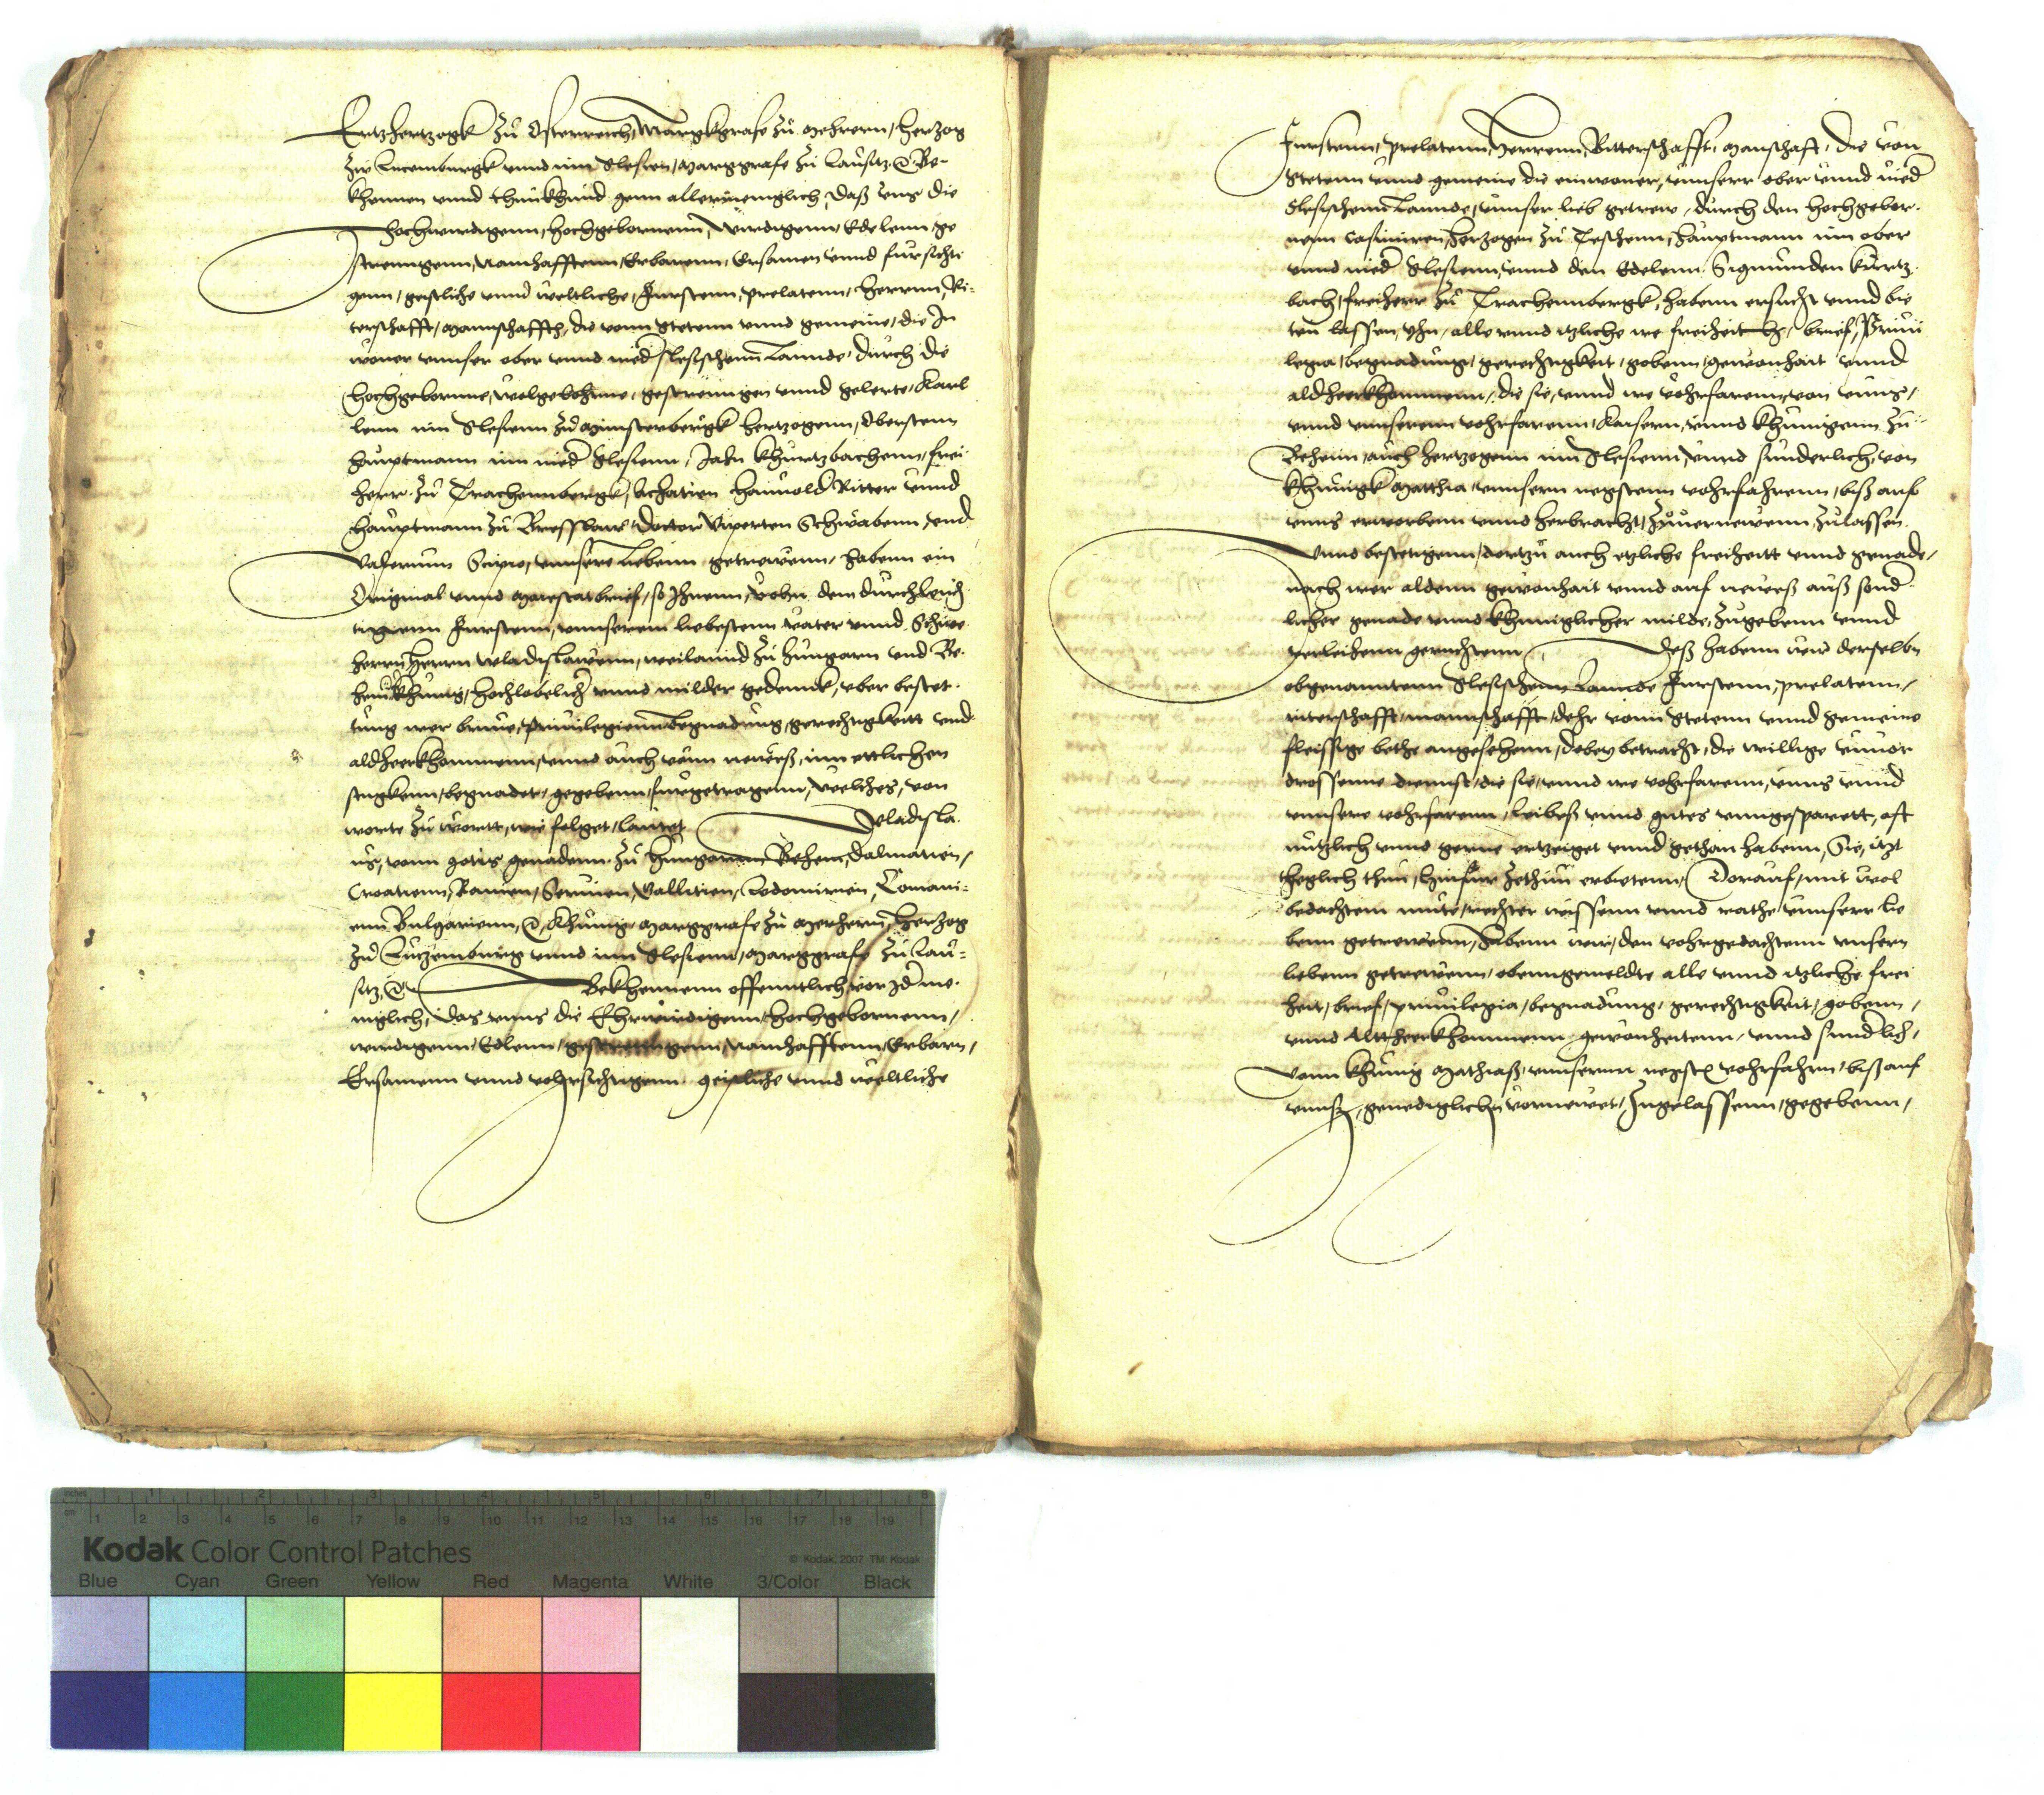 Ertzhertzogk zu Osterreich, Margkgrafe zu Mehrern, Hertzog
zu Lucemburgk unnd inn Slesien, Marggrafe zu Lausitz Be-
khennen unnd thun khund genn allermeniglich, daß uns die
hochwirdigenn, hochgebornenn, wirdigenn, Edelenn, ge
strenngenn, Namhafftenn, Erbarenn, Ersamen unnd fursichti
genn, geistliche unnd weltliche, Furstenn, prelatenn, herrnn, Ri-
terschafft, Mannschafft, die vonn Stetenn unnd gemeine, die In
woner unnser ober unnd nieder slesischenn Lannde, durch die
hochgebornne, wolgebohrne, gestrenngen unnd gelerte, Karl
lenn inn Slesienn zu Munsterbergk hertzogenn, Oberstenn
hauptmann inn nieder Slesienn, Jahn Khurtzbachenn, frei
herr zu Trachennbergk, Achatien Haunold Ritter unnd
hauptmann zu Bresslaw, Doctor Viperten Schwabenn, und
unnsere Liebenn getrewenn, habenn ein
Original unnd Maiestatbrief, so Ihnenn, vohn dem durchleuch
tigenn Furstenn, unnserenn liebestenn vater unnd Schwe
herrn, Herren Wladislawenn, weilannd zu Hungarn und Be-
hem Khunig, hochlobelicher unnd milder gedennck, uber bestet-
tung irer brieve, privilegienn, begnadung, gerechtigkeitt und
aldheerkhommenn, unnd auch vonn neweß, inn ettlichen
stugkenn, begnadet, gegebenn, furgetragenn, welches, von
worte zu wortt, wie folget, lautet Wladisla-
us, vonn gotts genadenn zu Hungarnn Behem, Dalmatien,
Croatienn, Ramen, Servien, Gallitien, Lodomirien, Comani-
enn Bulgarienn, Khunig, Marggrafe zu Merhern, Hertzog
zu Lutzemburg unnd inn Slesienn, Marggrafe zu Lau-
sitz Bekhennenn offenntlich, vor Ider me-
niglich, das unns die Ehrwirdigenn, hochgebornenn,
wirdigenn, Edlenn, gestrenngenn, Namhafftenn, Erbarn,
Ersamenn unnd vohrsichtigenn, geistliche unnd weltliche
Furstenn, prelatenn, Herrenn, Ritterschafft, Manschaft, die von
Stetenn unnd gemeine die einwoner, unnserr ober unnd nieder
slesischenn Lannde, unnser lieb getrew, durch den hochgebor-
nenn Casimiren, Hertzogen zu Teschenn, hauptmann inn ober
unnd nieder Slesienn, unnd den Edelenn Sigmunden Kurtz
bach, freiherr zu Trachennbergk, habenn ersucht unnd bie
ten lassen, Ihn, alle unnd itzliche ire freiheit, brief, Privi
legia, begnadung, gerechtigkeit, gobenn, gewonhait unnd
aldheerkhommenn, die sie, unnd ire vohrfarenn, von unns,
unnd unnserenn vohrfarenn, Kaisern, unnd Khunigenn zu
Behenn, auch hertzogenn inn Slesienn, unnd sunderlich, von
Khunigk Matthia, unnsern negstenn vohrfahrenn, biß auf
unns erworbenn unnd herbracht, zuvernewenn zulassen
Unnd bestetigenn, dortzu auch etzliche freiheitt unnd genade,
nach irer aldenn gewonhait unnd auf neweß auß sond
licher genade unnd khuniglicher milde, zugebenn unnd
verleihenn geruchtenn Deß habenn wir derselbn
obgenanntenn Slesischenn Lannde Furstenn, prelatenn,
ritterschafft, mannschafft, dehr vonn Stetenn unnd gemeine
fleissige bethe angesehenn, dobey betracht, die willige unnvor
drossenne diennst, die sie, unnd ire vohrfarenn, unns unnd
unnsere vohrfarenn, leibeß unnd gutes unngesparett, oft
nutzlich unnd gerne ertzeiget unnd gethan habenn, Sie, itzt
theglich thun, hinfur zethun erbietenn, Dorauf, mit wol
bedachtem mute, rechter wissenn unnd rathe unnserr lie
benn getrewenn, Habenn wir, den vohrgedachtenn unsern
liebenn getrewenn, obenngemeldte alle unnd itzliche frei
heit, brief, privilegia, begnadung, gerechtigkeit, gobenn,
unnd Altheerkhommenn gewonheitenn, unnd sunderlich,
vonn Khunig Mathiaß, unnsernn negsten vohrfahrn, biß auf
unnß, genediglichen vornewet, zugelassenn, gegebenn,